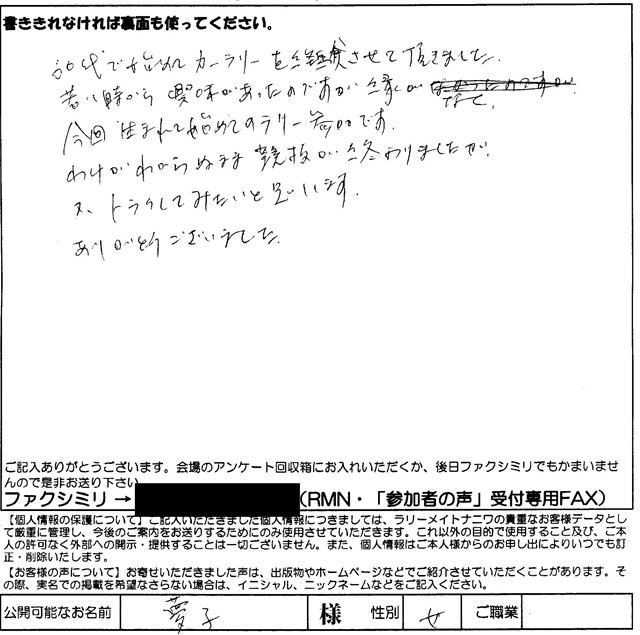 書ききれなければ裏面も使ってください。
50代で始めてカーラリーを経験させて頂きました。
若い時から興味があったのですが縁が
なくて、
今回生まれて始めてのラリー参加です。
わけがわからぬまま競技が終わりましたが、
又、トライしてみたいと思います。
ありがとうございました。
ご記入ありがとうございます。会場のアンケート回収箱にお入れいただくか、後日ファクシミリでもかまいませ
んので是非お送り下さい
ファクシミリ → (RMN・「参加者の声」受付専用FAX)
【個人情報の保護について】ご記入いただきました個人情報につきましては、ラリーメイトナニワの貴重なお客様データとし
て厳重に管理し、今後のご案内をお送りするためにのみ使用させていただきます。これ以外の目的で使用すること及び、ご本
人の許可なく外部への開示・提供することは一切ございません。また、個人情報はご本人様からのお申し出によりいつでも訂
正・削除いたします。
【お客様の声について】お寄せいただきました声は、出版物やホームページなどでご紹介させていただくことがあります。そ
の際、実名での掲載を希望なさらない場合は、イニシャル、ニックネームなどをご記入ください。
公開可能なお名前 夢子 様 性別 女 ご職業